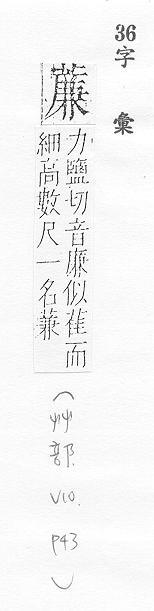 36字彙
薕
力鹽切音廉似萑而
細高數尺一名蒹
(艸部. V10. P43)